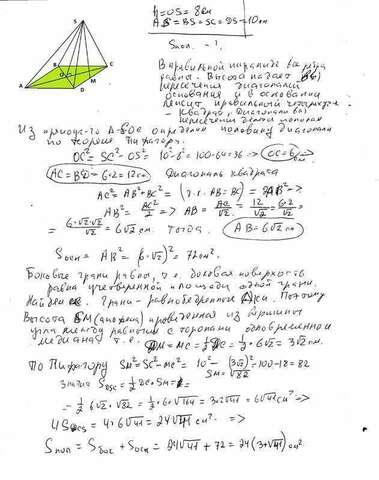 S
B
C
O
A
M
D
H=OS=8см
AB=BS=SC=DS=10см
Sпол. -?
В правильной пирамиде все ребра
равны. Высота падает в
пересечения диагоналей
основания и в основании
лежит правильный четырехуг.
- квадрат. Диагонали в т.
пересечения делятся пополам
Из прямоуг-го Δ SOC определим половину диагонали
по теореме Пифагора.
OC²=SC²-OS²=10²-8²=100-64=36 => OC=6см
AC=BD=6·2=12см Диагональ квадрата
AC²=AB²+BC²= (т.к. AB=BC) = 2AB² =>
AB²=AC²/2 => AB=AC/√2=12/√2=6·2/√2=
=6·√2·√2/√2=6√2 см. Тогда. AB=6√2 см
Sосн=AB²=(6√2)²=72см².
Боковые грани равны, т.е. боковая поверхность
равна учетверенной площади одной грани.
Найдем ее. Грани - равнобедренные Δ-ки. Поэтому
Высота SM (апофема) проведенная из вершины
угла между равными сторонами одновременно
медиана т.е. DM=MC=½DC=½·6√2=3√2см.
По Пифагору SM²=SC²-MC²=10²-(3√2)²=100-18=82
SM=√82
значит SDSC=½DC·SM=
=½6√2·√82=½·6·√164=3·2√41=6√41см² =>
4SDCS=4·6√41=24√41 см² =>
Sпол=Sбок+Sосн=24√41+72=24(3+√41)см²